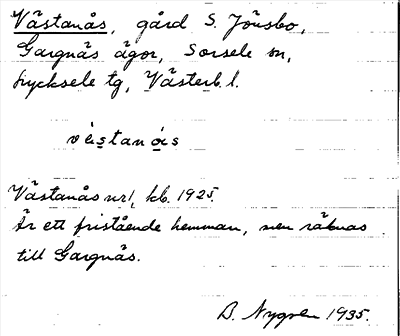 Västanås, gård S. Jönsbo,
Gargnäs ägor, Sorsele sn,
Lycksele tg, Västerb. l.
vèstanás
Västanås nr 1, kb. 1925.
Är ett fristående hemman, men räknas
till Gargnäs.
B. Nygren 1935.